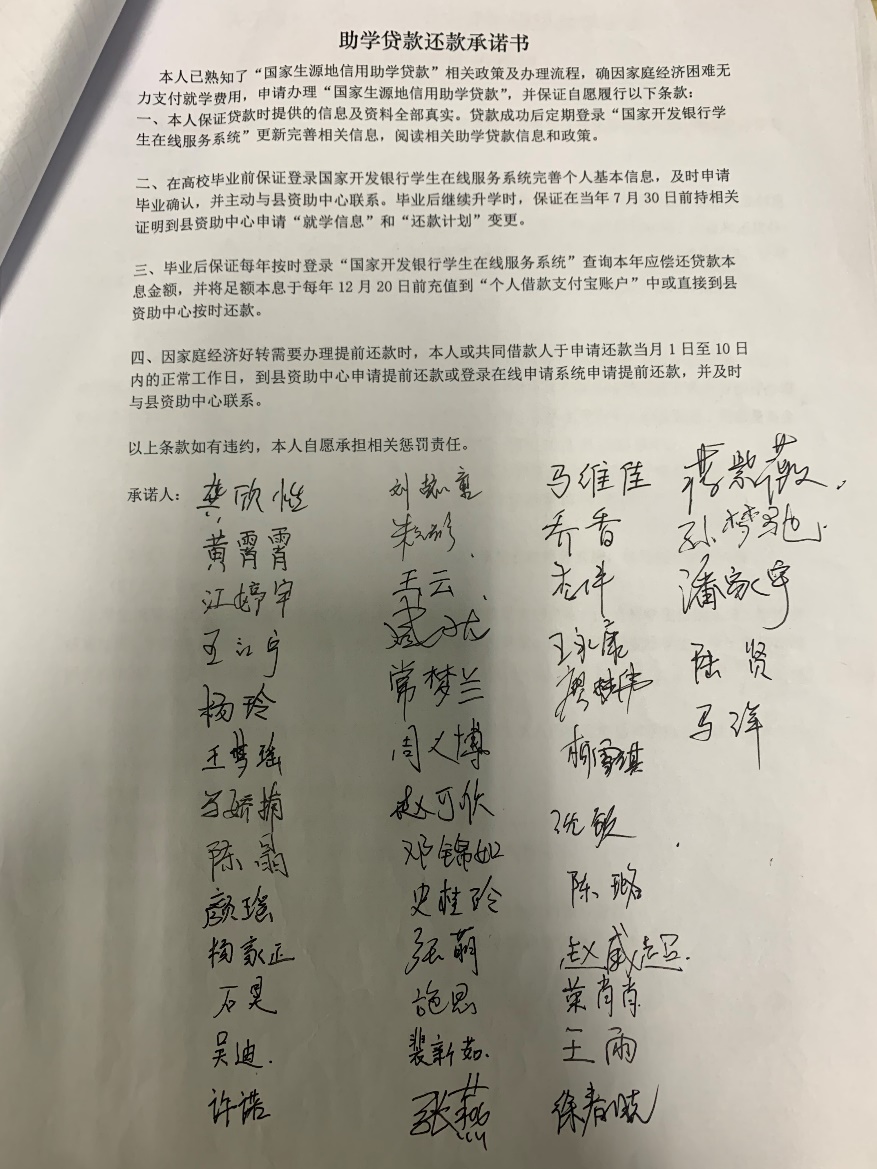 助学贷款还款承诺书
本人已熟知了“国家生源地信用助学贷款”相关政策及办理流程，确因家庭经济困难无
力支付就学费用，申请办理“国家生源地信用助学贷款”，并保证自愿履行以下条款：
一、本人保证贷款时提供的信息及资料全部真实。贷款成功后定期登录“国家开发银行学
生在线服务系统”更新完善相关信息，阅读相关助学贷款信息和政策。
二、在高校毕业前保证登录国家开发银行学生在线服务系统完善个人基本信息，及时申请
毕业确认，并主动与县资助中心联系。毕业后继续升学时，保证在当年 7 月 30 日前持相关
证明到县资助中心申请“就学信息”和“还款计划”变更。
三、毕业后保证每年按时登录“国家开发银行学生在线服务系统”查询本年应偿还贷款本
息金额，并将足额本息于每年 12 月 20 日前充值到“个人借款支付宝账户”中或直接到县
资助中心按时还款。
四、因家庭经济好转需要办理提前还款时，本人或共同借款人于申请还款当月 1 日至 10 日
内的正常工作日，到县资助中心申请提前还款或登录在线申请系统申请提前还款，并及时
与县资助中心联系。
以上条款如有违约，本人自愿承担相关惩罚责任。
承诺人： 龚欣怡 马维佳 蒋紫薇
黄霄霄 乔香 孙梦
江婷宇 王云 潘家宇
王江宁 王永康 陆贤
杨玲 常梦兰 马洋
王梦瑶 周义博 柯雪琪
赵可欣
陈晶 邓锦如 陈璐
颜瑶 史桂玲
杨家正 张萌 赵威超
石昊 施恩 荣肖肖
吴迪 裴新茹 王雨
许诺 张燕 徐春晓